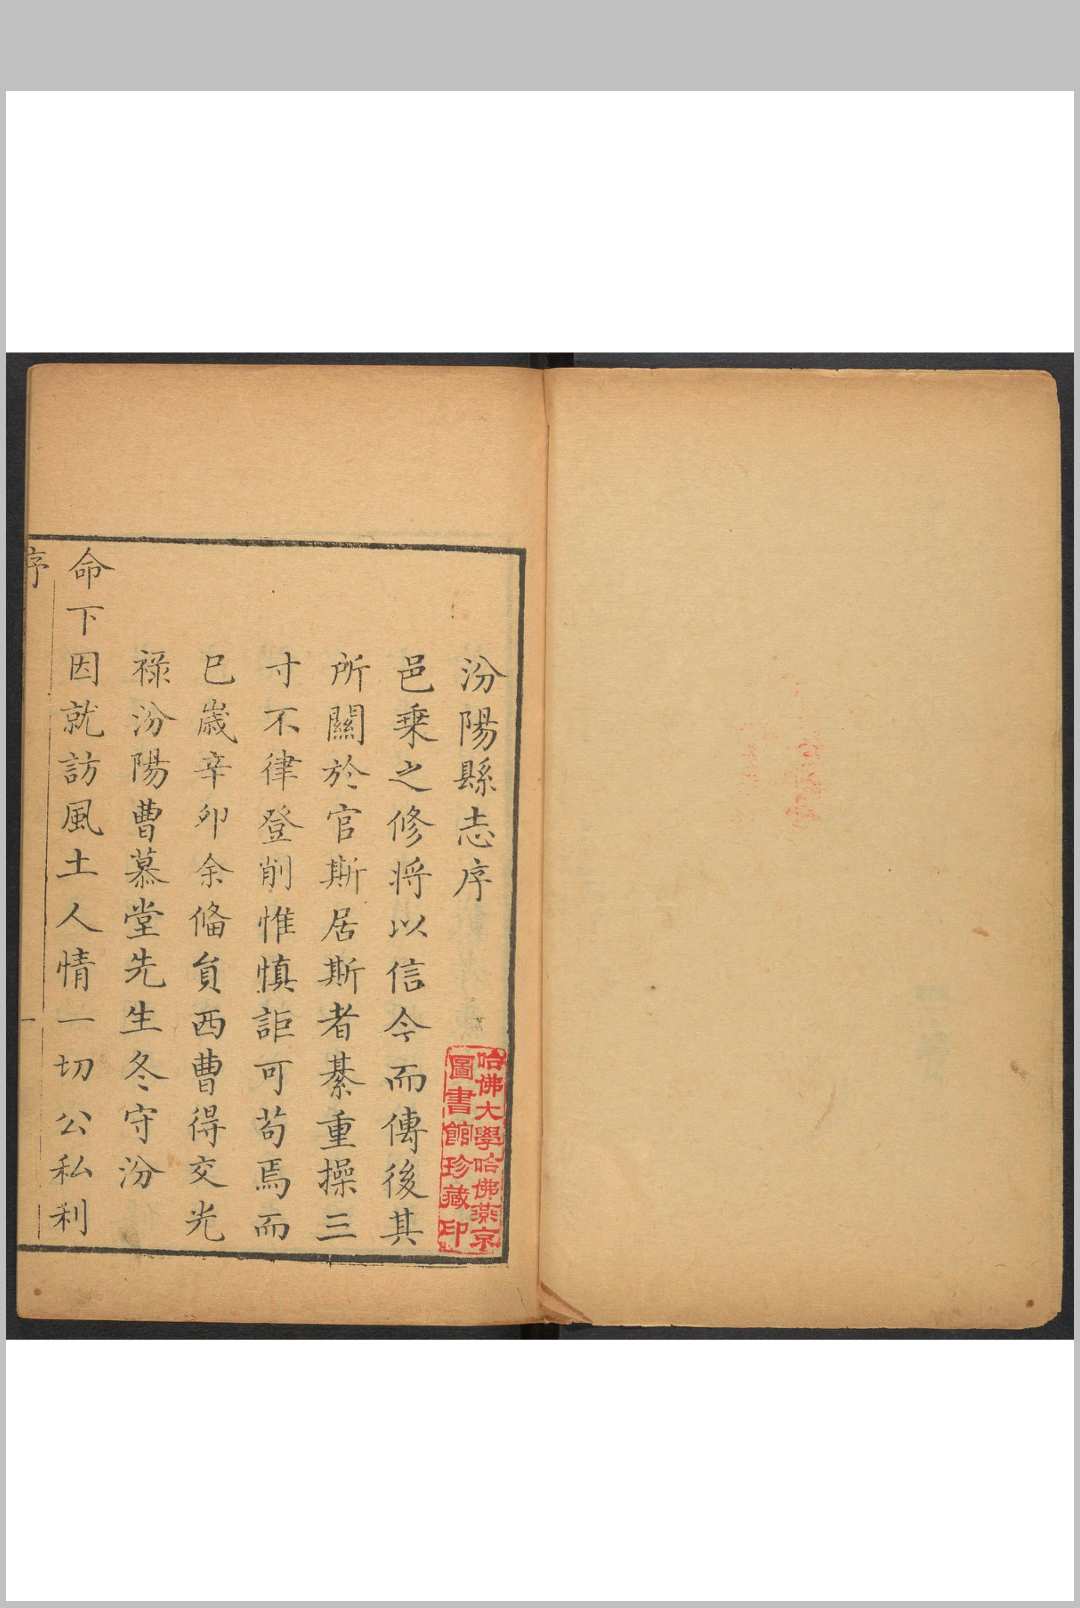 汾陽縣志序
邑乗之修將以信今而傳後其
所關於官斯居斯者綦重操三
寸不律登削惟慎詎可苟焉而
已歳辛卯余偹負西曹得交光
祿汾陽曹慕堂先生冬守汾
命下因就訪風土人情一切公私利
序
一
哈佛大學哈佛燕京
圖書館珍藏印